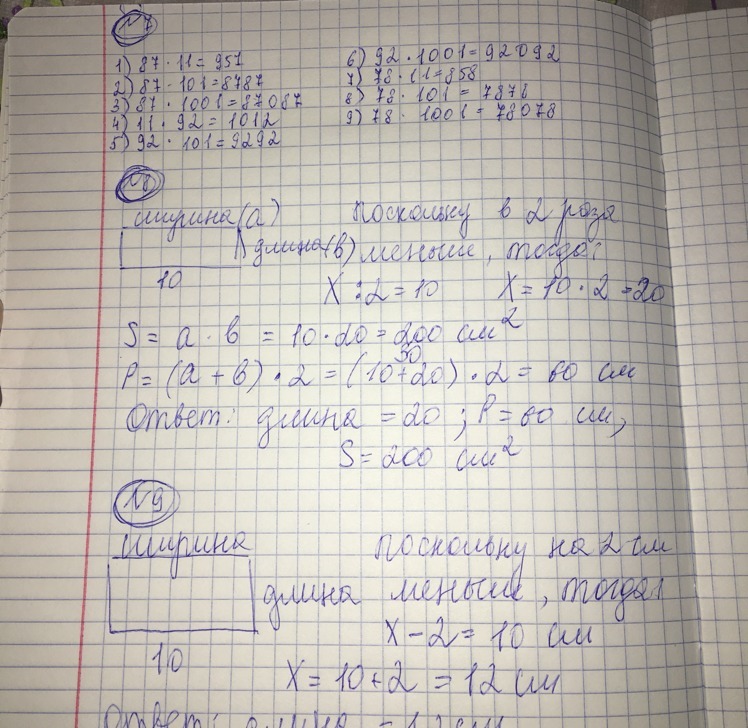 №7
1) 87 · 11 = 957
2) 87 · 101 = 8787
3) 87 · 1001 = 87087
4) 11 · 92 = 1012
5) 92 · 101 = 9292
6) 92 · 1001 = 92092
7) 78 · 11 = 858
8) 78 · 101 = 7878
9) 78 · 1001 = 78078
№8
ширина(а) Поскольку в 2 роза
длина(в) меньше, тогда:
10 X : 2 = 10 X = 10 · 2 = 20
S = a · в = 10 · 20 = 200 см²
30
P = (a + в) · 2 = (10+20) · 2 = 60 см
Ответ: длина = 20 ; P = 60 см,
S = 200 см²
№9
ширина Поскольку на 2 см
длина меньше, тогда:
X - 2 = 10 см
10
X = 10 + 2 = 12 см
Ответ: длина = 12 см